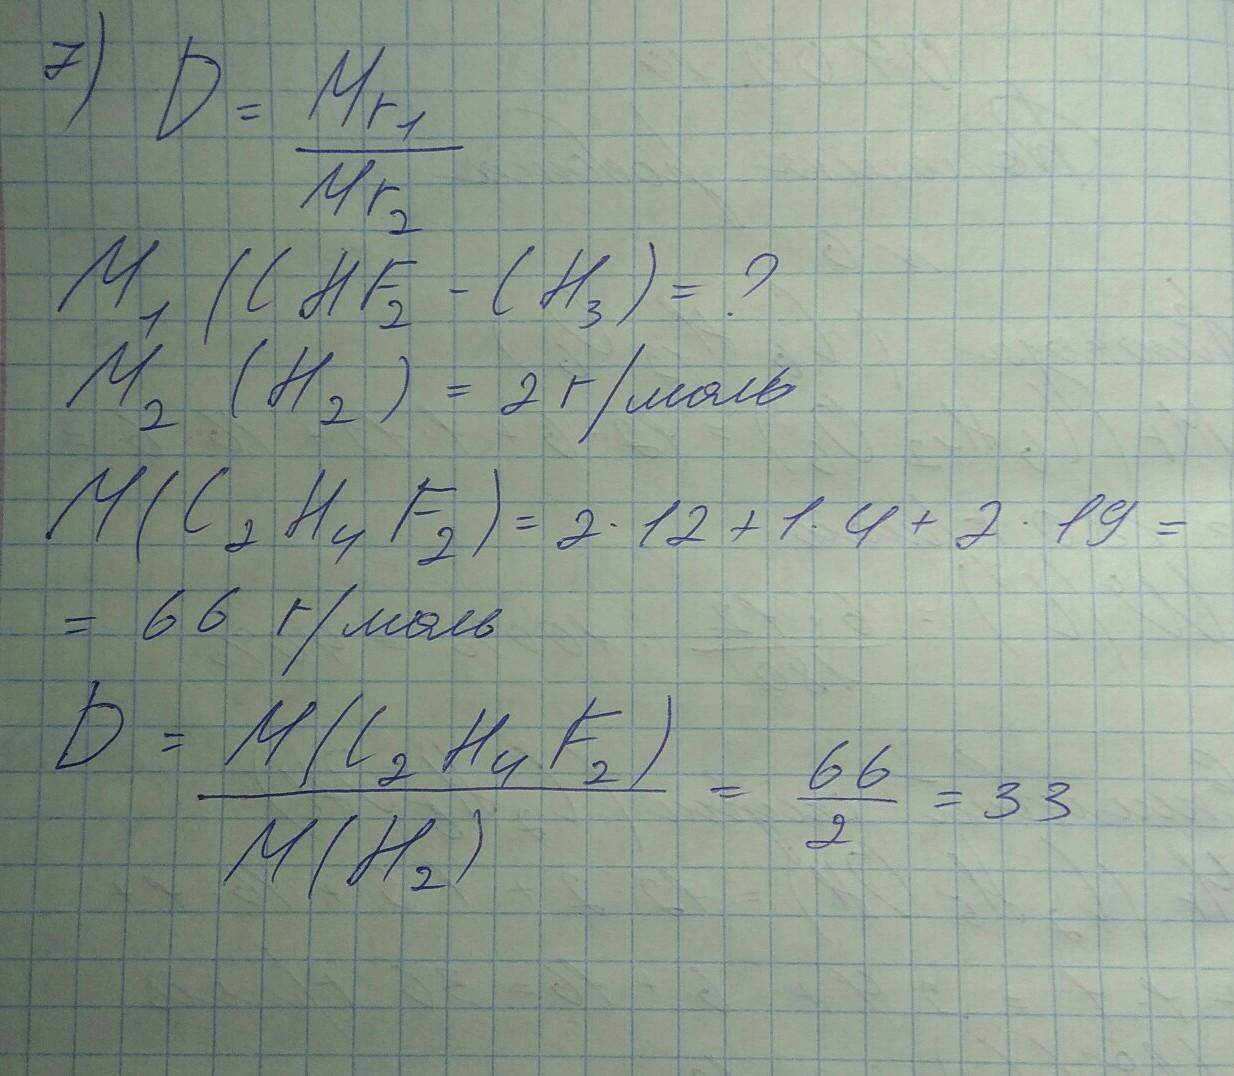 7) D = Mr₁ / Mr₂
M₁ (CHF₂ - CH₃) = ?
M₂ (H₂) = 2 г/моль
M(C₂H₄F₂) = 2·12 + 1·4 + 2·19 =
= 66 г/моль
D = M(C₂H₄F₂) / M(H₂) = 66 / 2 = 33